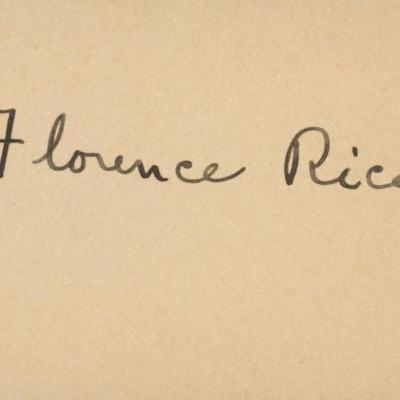 Florence Rice